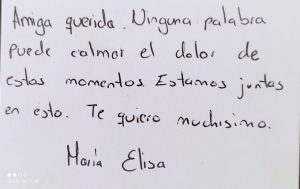 Amiga querida. Ninguna palabra
puede calmar el dolor de
estos momentos. Estamos juntas
en esto. Te quiero muchisimo.
María Elisa